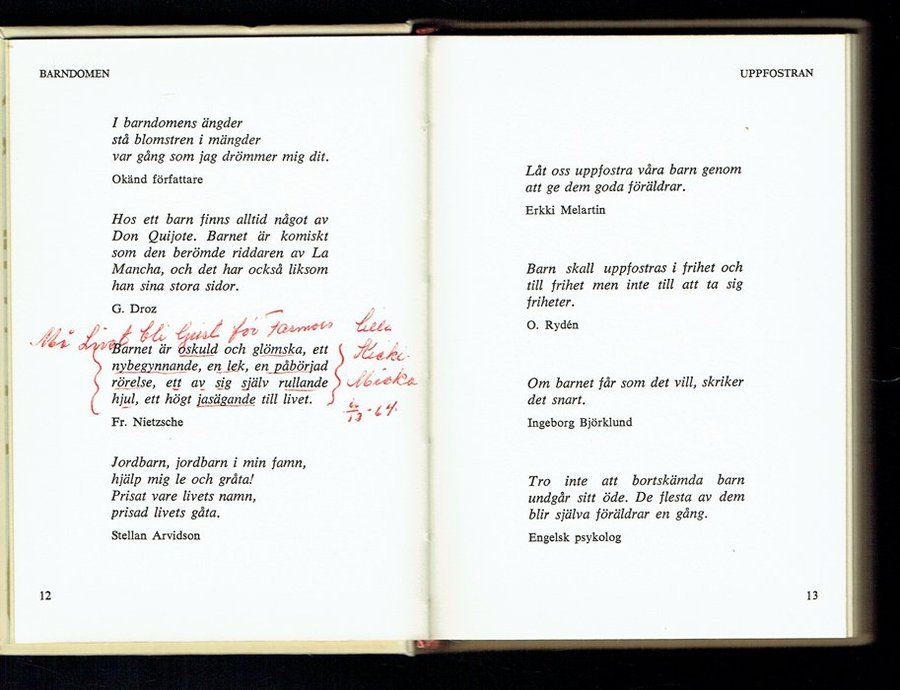 BARNDOMEN
I barndomens ängder
stå blomstren i mängder
var gång som jag drömmer mig dit.
Okänd författare
Hos ett barn finns alltid något av
Don Quijote. Barnet är komiskt
som den berömde riddaren av La
Mancha, och det har också liksom
han sina stora sidor.
G. Droz
Må Livet bli ljust för Farmors lilla
Kicki-
Micka
13 -64.
Barnet är oskuld och glömska, ett
nybegynnande, en lek, en påbörjad
rörelse, ett av sig själv rullande
hjul, ett högt jasägande till livet.
Fr. Nietzsche
Jordbarn, jordbarn i min famn,
hjälp mig le och gråta!
Prisat vare livets namn,
prisad livets gåta.
Stellan Arvidson
12
UPPFOSTRAN
Låt oss uppfostra våra barn genom
att ge dem goda föräldrar.
Erkki Melartin
Barn skall uppfostras i frihet och
till frihet men inte till att ta sig
friheter.
O. Rydén
Om barnet får som det vill, skriker
det snart.
Ingeborg Björklund
Tro inte att bortskämda barn
undgår sitt öde. De flesta av dem
blir själva föräldrar en gång.
Engelsk psykolog
13